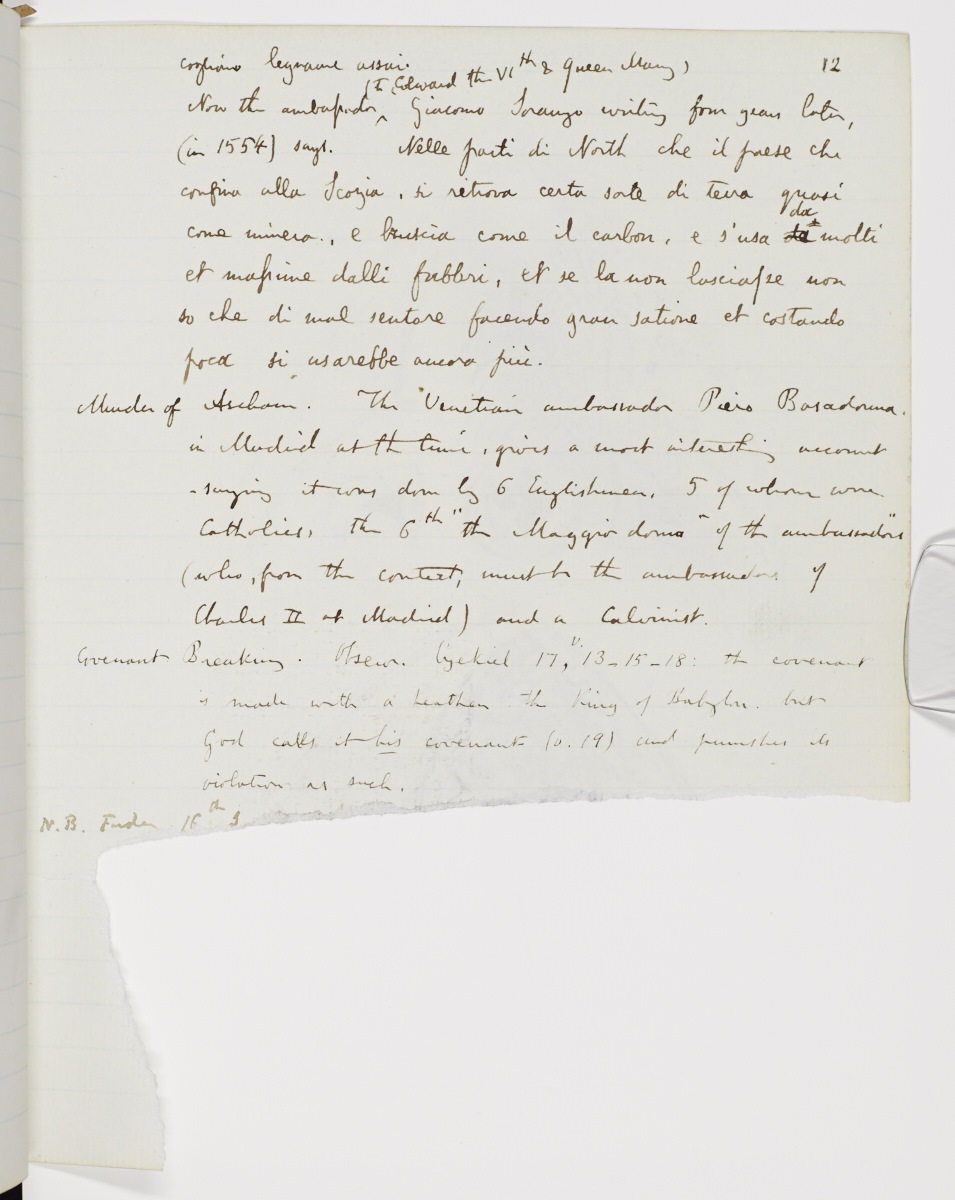 cogliano legname assai. 12
(to Edward the VIth & Queen Mary)
Now the ambassador Giacomo Soranzo writing four years later,
(in 1554) says. Nelle parti di North che il paese che
confina alla Scozia, si retrova certa sorte di terra quasi
come minera., e bruscia come il carbon, e s'usa da molti
et massime dalli fabbri, et se la non lasciasse non
so che di mal sentore facendo gran satione et costando
poca si usarebbe ancora più.
Murder of Ascham. The Venetian ambassador Piero Basadonna.
in Madrid at the time, gives a most interesting account
- saying it was done by 6 Englishmen, 5 of whom were
Catholics, the 6th "the Maggiordomo" of the ambassadors"
(who, from the context, must be the ambassador of
Charles II at Madrid) and a Calvinist.
Covenant Breaking. Observe Ezekiel 17, v. 13-15-18: the covenant
is made with a heathen the King of Babylon. but
God calls it his covenant (v. 19) and punishes its
violation as such.
N.B.